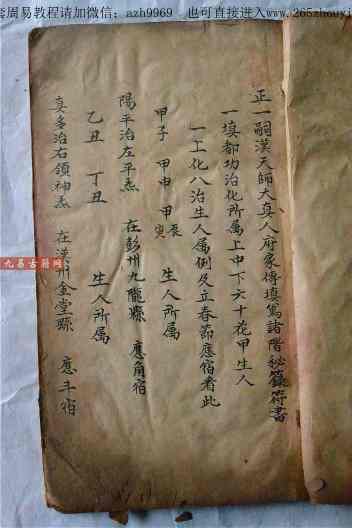 套周易教程请加微信：azh9969　也可直接进入www.265zhouyi
正一嗣漢天師大真人府家傳填寫諸階秘籙符書
一填都功治化所属上中下六十花甲生人
一上化八治生人属例及立春節應宿者此
甲子　甲申　甲寅　辰　生人所属
陽平治左平炁　在彭州九隴縣　應角宿
乙丑　丁丑　生人所属
真多治右領神炁　在漢州金堂縣　應斗宿
九易古籍网